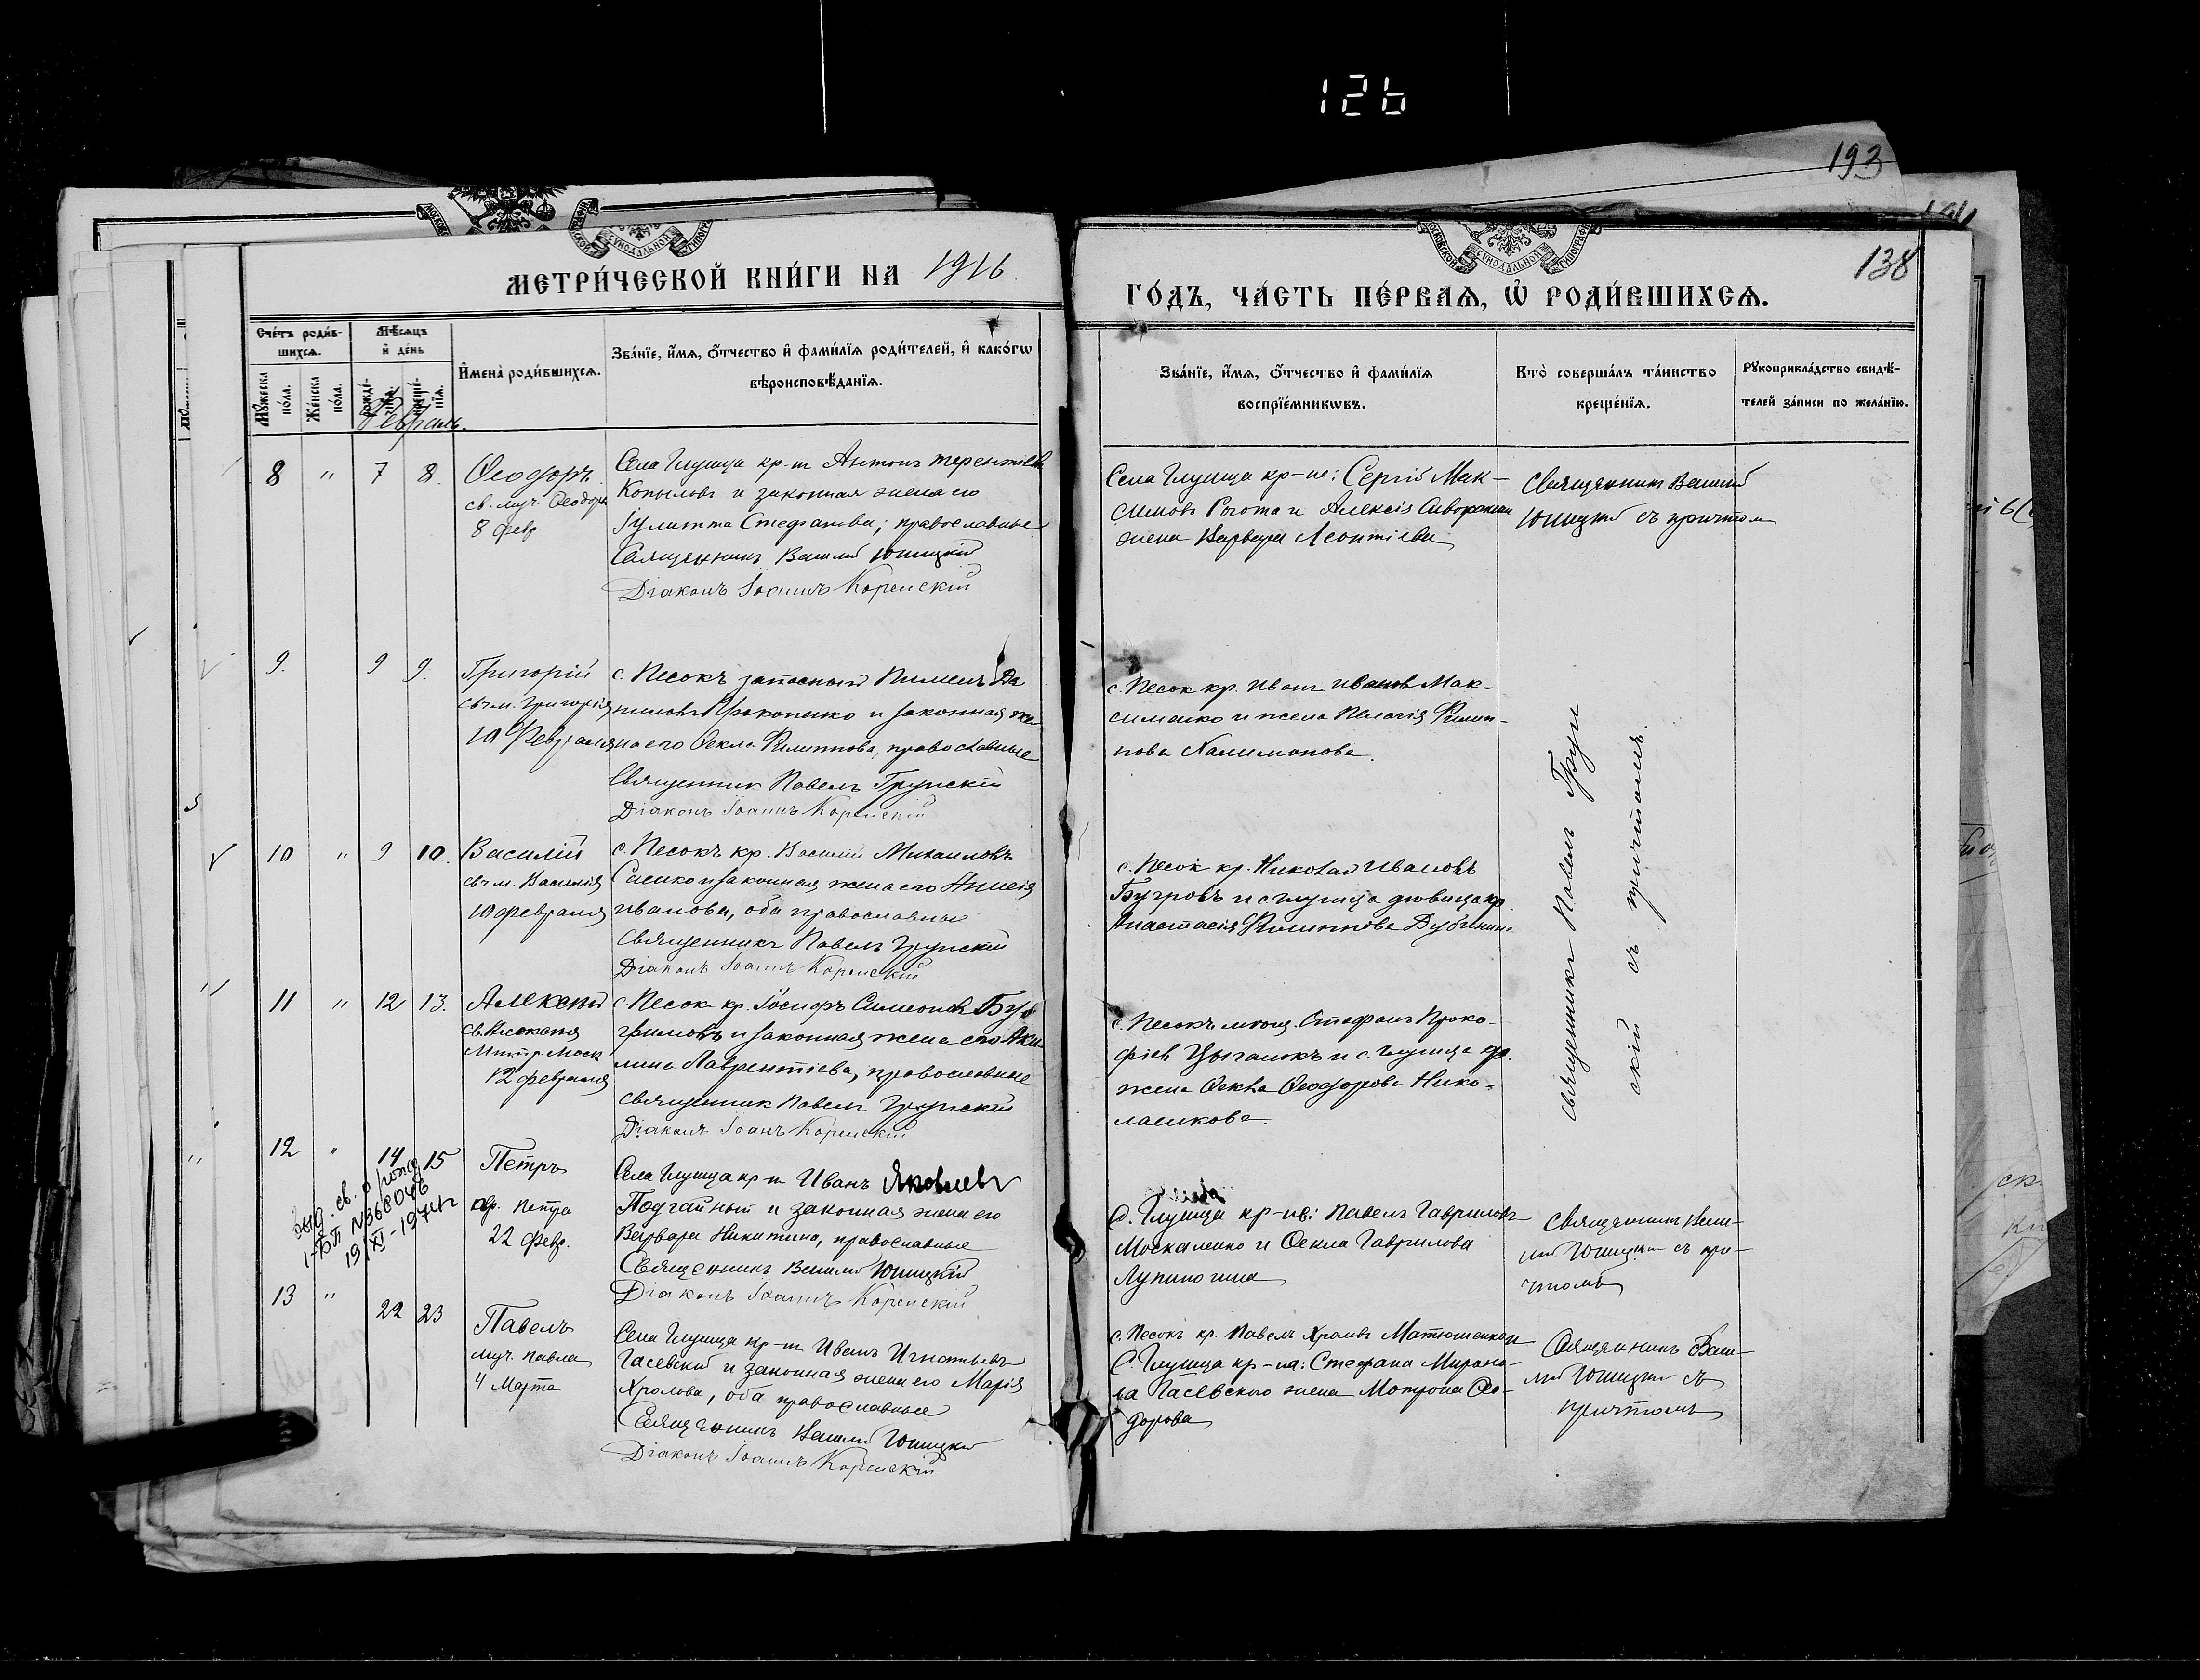 126
193
138
МЕТРИЧЕСКОЙ КНИГИ НА 1916
ГОДЪ, ЧАСТЬ ПЕРВАЯ, Ѡ РОДИВШИХСЯ.
Счетъ родив-
шихся.
Мѣсяцъ
и день
Имена родившихся.
Званіе, имя, отчество и фамилія родителей, и какогѡ
вѣроисповѣданія.
Мужеска
пола.
Женска
пола.
рожде-
нія.
креще-
нія.
Февраль.
Званіе, имя, отчество и фамилія
воспріемникѡвъ.
Кто совершалъ таинство
крещенія.
Рукоприкладство свидѣ-
телей записи по желанію.
8 " 7 8. Ѳеодоръ
св. муч. Ѳеодора
8 февр
Села Глушца кр-нъ Антонъ Терентіевъ
Копыловъ и законная жена его
Іулитта Стефанова; православные
Священникъ Василій Юницкій
Діаконъ Іоаннъ Коренскій
Села Глушца кр-не: Сергій Мак-
симовъ Рогота и Алексія
жена Варвара Леонтіева
Священникъ Василій
Юницкій съ причтом
9. 9 9. Григорій
10 Февраля
с. Песокъ запасный Пименъ Да
ниловъ Прокопенко и законная же
на его Ѳекла Филиппова, православные
Священник Павелъ Грунскій
Діаконъ Іоаннъ Коренскій
с. Песок кр. Иван Иванов Мак-
сименко и жена Пелагія Филип-
пова Халимонова.
Священникъ Павелъ Грун
скій съ причтомъ.
10 " 9 10. Василій
св м. Василія
10 февраля
с. Песокъ кр. Василій Михаиловъ
Сиенко и законная жена его
Иванова, оба православные
Священникъ Павелъ Грунскій
Діаконъ Іоаннъ Коренскій
с. Песок кр. Николай Ивановъ
Бугровъ и с Глушца дѣвица кр.
Анастасія Филиппова
11 " 12 13. Алексій
св. Алексія
Митр. Моск
12 февраля
с. Песок кр. Іосифъ Симеонов
и законная жена его Аки-
лина Лаврентіева, православные
священник Павелъ Грунскій
Діаконъ Іоанъ Коренскій
с. Песокъ Стефанъ Проко-
фіев Цыганокъ и с. Глушца кр.
жена Ѳекла Ѳеодорова Нико-
лаенкова.
12 " 14 15 Петръ
пр. Петра
22 февр.
выд. св. о рожд
1-БП №366046
19/XI-1974г
Села Глушца кр-нъ Иванъ Яковлевъ
и законная жена его
Варвара Никитина, православные
Священникъ Василій Юницкій
Діаконъ Іоаннъ Коренскій
С. Глушца кр-не: Павелъ Гавриловъ
Москаленко и Ѳекла Гаврилова
Священникъ Васи-
лій Юницкій съ при-
чтомъ
13 " 22 23 Павелъ
муч. Павла
4 Марта
Села Глушца кр-нъ Иванъ Игнатьевъ
Гаевскій и законная жена его Марія
Хролова, оба православные
Священникъ Василій Юницкій
Діаконъ Іоаннъ Коренскій
с. Песокъ кр. Павелъ Хроловъ Матюшенко и
С. Глушца кр-на: Стефана Мироно-
ва Гаевскаго жена Матрона Ѳео-
дорова
Священникъ Васи-
лій Юницкій съ
причтомъ